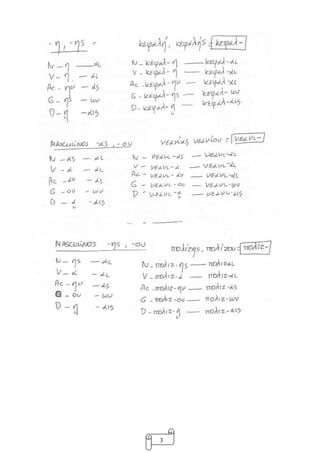 -η, -ης = κεφαλή, κεφαλῆς = κεφαλ-
N – η — αι N – κεφαλ-η — κεφαλ-αι
V – η — αι V – κεφαλ-η — κεφαλ-αι
Ac – ην — ας Ac – κεφαλ-ην — κεφαλ-ας
G – ης — ων G – κεφαλ-ης — κεφαλ-ων
D – ῃ — αις D – κεφαλ-ῃ — κεφαλ-αις
MASCULINOS -ας, -ου νεανίας νεανίου = νεανι-
N – ας — αι N – νεανι-ας — νεανι-αι
V – α — αι V – νεανι-α — νεανι-αι
Ac – αν — ας Ac – νεανι-αν — νεανι-ας
G – ου — ων G – νεανι-ου — νεανι-ων
D – ᾳ — αις D – νεανι-ᾳ — νεανι-αις
MASCULINOS -ης, -ου πολίτης, πολίτου = πολιτ-
N – ης — αι N – πολιτ-ης — πολιτ-αι
V – α — αι V – πολιτ-α — πολιτ-αι
Ac – ην — ας Ac – πολιτ-ην — πολιτ-ας
G – ου — ων G – πολιτ-ου — πολιτ-ων
D – ῃ — αις D – πολιτ-ῃ — πολιτ-αις
3